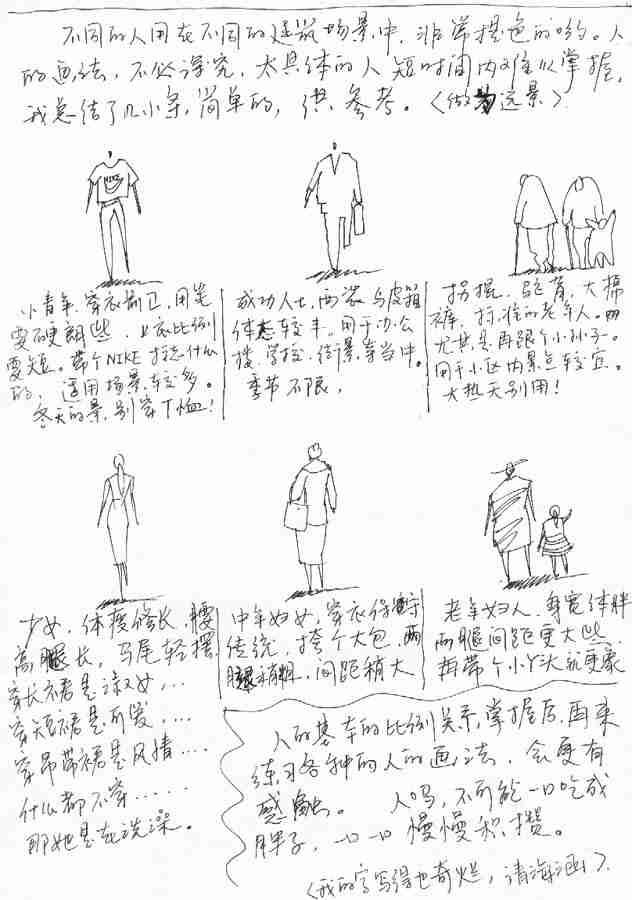 不同的人用在不同的建筑场景中，非常提色的哟。人
的画法，不必深究，太具体的人短时间内难以掌握，
我总结了几小条，简单的，供参考。〈做为远景〉
NIKE
小青年，穿衣前卫，用笔
要硬朗些，上衣比例
要短。带个NIKE标志什么
的，适用场景较多。
冬天的景，别穿T恤！
成功人士，西装与皮箱
体态较丰。用于办公
楼，学校，街景等当中。
季节不限，
拐棍，驼背，大棉
裤，标准的老年人。
尤其是再跟个小孙子。
用于小区内景点较宜。
大热天别用！
少女，体瘦修长，腰
高腿长，马尾轻摆
穿长裙是淑女，…
穿短裙是可爱，…
穿吊带裙是风情…
什么都不穿……
那她是在洗澡。
中年妇女，穿衣保守
传统，挎个大包，两
腿稍粗，间距稍大
老年妇人，身宽体胖
两腿间距更大些
再带个小丫头就更像
人的基本的比例关系，掌握后，再来
练习各种的人的画法，会更有
感触。 人吗，不可能一口吃成
胖子，一口一口慢慢积攒。
〈我的字写得也奇烂，请海涵〉